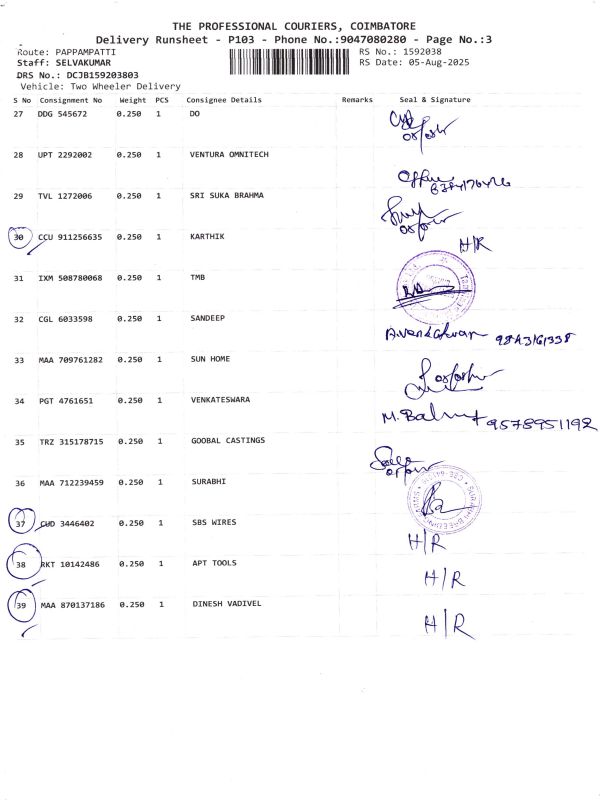 THE PROFESSIONAL COURIERS, COIMBATORE
Delivery Runsheet - P103 - Phone No.:9047080280 - Page No.:3
Route: PAPPAMPATTI RS No.: 1592038
Staff: SELVAKUMAR RS Date: 05-Aug-2025
DRS No.: DCJB159203803
Vehicle: Two Wheeler Delivery
S No Consignment No Weight PCS Consignee Details Remarks Seal & Signature
27 DDG 545672 0.250 1 DO
28 UPT 2292002 0.250 1 VENTURA OMNITECH
29 TVL 1272006 0.250 1 SRI SUKA BRAHMA
30 CCU 911256635 0.250 1 KARTHIK H/R
31 IXM 508780068 0.250 1 TMB
32 CGL 6033598 0.250 1 SANDEEP
33 MAA 709761282 0.250 1 SUN HOME
34 PGT 4761651 0.250 1 VENKATESWARA 9578951192
35 TRZ 315178715 0.250 1 GOOBAL CASTINGS
36 MAA 712239459 0.250 1 SURABHI
37 CUD 3446402 0.250 1 SBS WIRES H/R
38 RKT 10142486 0.250 1 APT TOOLS H/R
39 MAA 870137186 0.250 1 DINESH VADIVEL H/R